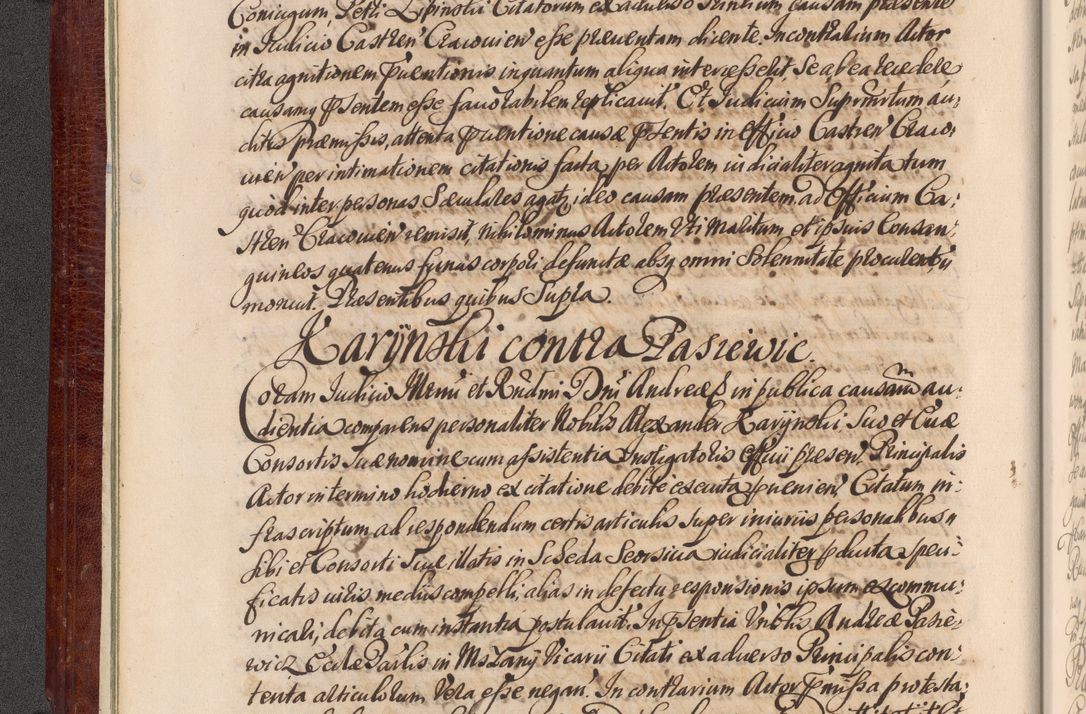 Coniugum, Petri Lipinski Citatorum ex aduerso Principalium causam præsente
in Iudicio Castren Cracouien esse præuentam dicente. In contrarium Actor
citra agnitionem Præuentionis in quantum aliqua intercesserit Se ab ea recedere
causamq. psentem esse fauorabilem replicauit. Et Iudicium Suprmtum au:
ditis præmissis, attenta præuentione causæ psentis in Officio Castren Craco:
uien per intimationem citationis facta, per Actorem iudicialiter agnita tum
quod inter personas Sæculares agatr, ideo causam præsentem ad Officium Ca:
stren Cracouien remisit, nihilominus Actorem uti Maritum et ipsius Consan:
guineos quatenus funus corpori defunctæ absq. omni Solennitate procurent, ÿ
monuit. Præsentibus quibus Supra.
Karÿnski contra Pasiewic.
Coram Iudicio Illrmi et Rndmi Dni Andreæ in publica causarum au:
dientia comparens personaliter Nobilis Alexander Karÿnski Suo et Euæ
Consortis Suæ nomine cum assistentia Instigatoris Officii præsen Principalis
Actor in termino hodierno ex citatione debite executa prouenien Citatum in:
frascriptum ad respondendum certis articulis Super iniuriis personalibus
sibi et Consorti Suæ illatis in Scheda Seorsiua iudicialiter pducta speci:
ficatis uiris medius compelli, alias in defectu responsionis ipsum excommu:
nicari, debita cum instantia postulauit. In psentia Vnblis Andreæ Pasie:
wicz Eccle Parlis in Mszanÿ Vicarii Citati ex aduerso Principalis con:
tenta articulorum Vera esse negan. In contrarium Actor præmissa protesta: